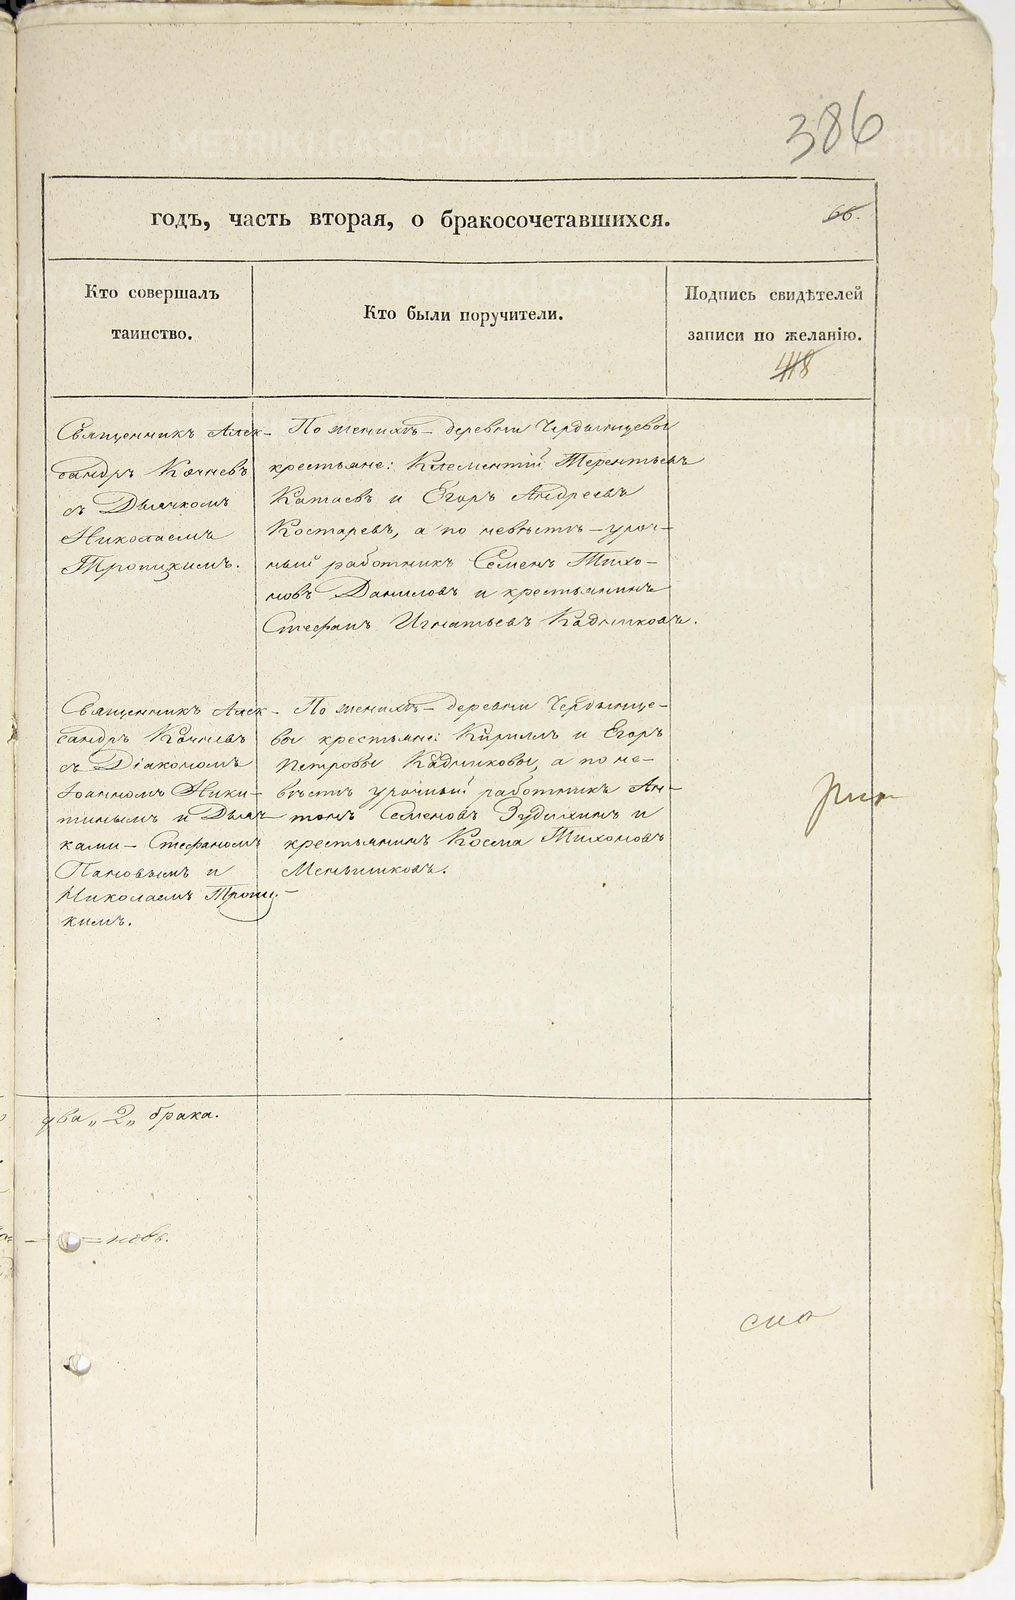 386
годъ, часть вторая, о бракосочетавшихся.
66.
Кто совершалъ
таинство.
Кто были поручители.
Подпись свидѣтелей
записи по желанію.
418
Священникъ Алек-
сандръ Кочневъ
съ Дьячкомъ
Николаемъ
Тропихимъ.
По женихѣ – деревни Чердынцевой
крестьяне: Климентій Терентьевъ
Катаевъ и Егоръ Андреевъ
Костаревъ, а по невѣстѣ – уроч-
ный работникъ Семенъ Тихо-
новъ Даниловъ и крестьянинъ
Стефанъ Игнатьевъ Кадниковъ.
Священникъ Алек-
сандръ Кочневъ
съ Діакономъ
Іоанномъ Ники-
тинымъ и Дьяч-
ками – Стефаномъ
Пановымъ и
Николаемъ
По женихѣ – деревни Чердынце-
вой крестьяне: Кирилъ и Егоръ
Петровы Кадниковы, а по не-
вѣстѣ урочный работникъ Ан-
тонъ Семеновъ Зудихинъ и
крестьянинъ Косма Тихоновъ
Меньшиковъ.
два „2„ брака.
METRIKI.GASO-URAL.RU